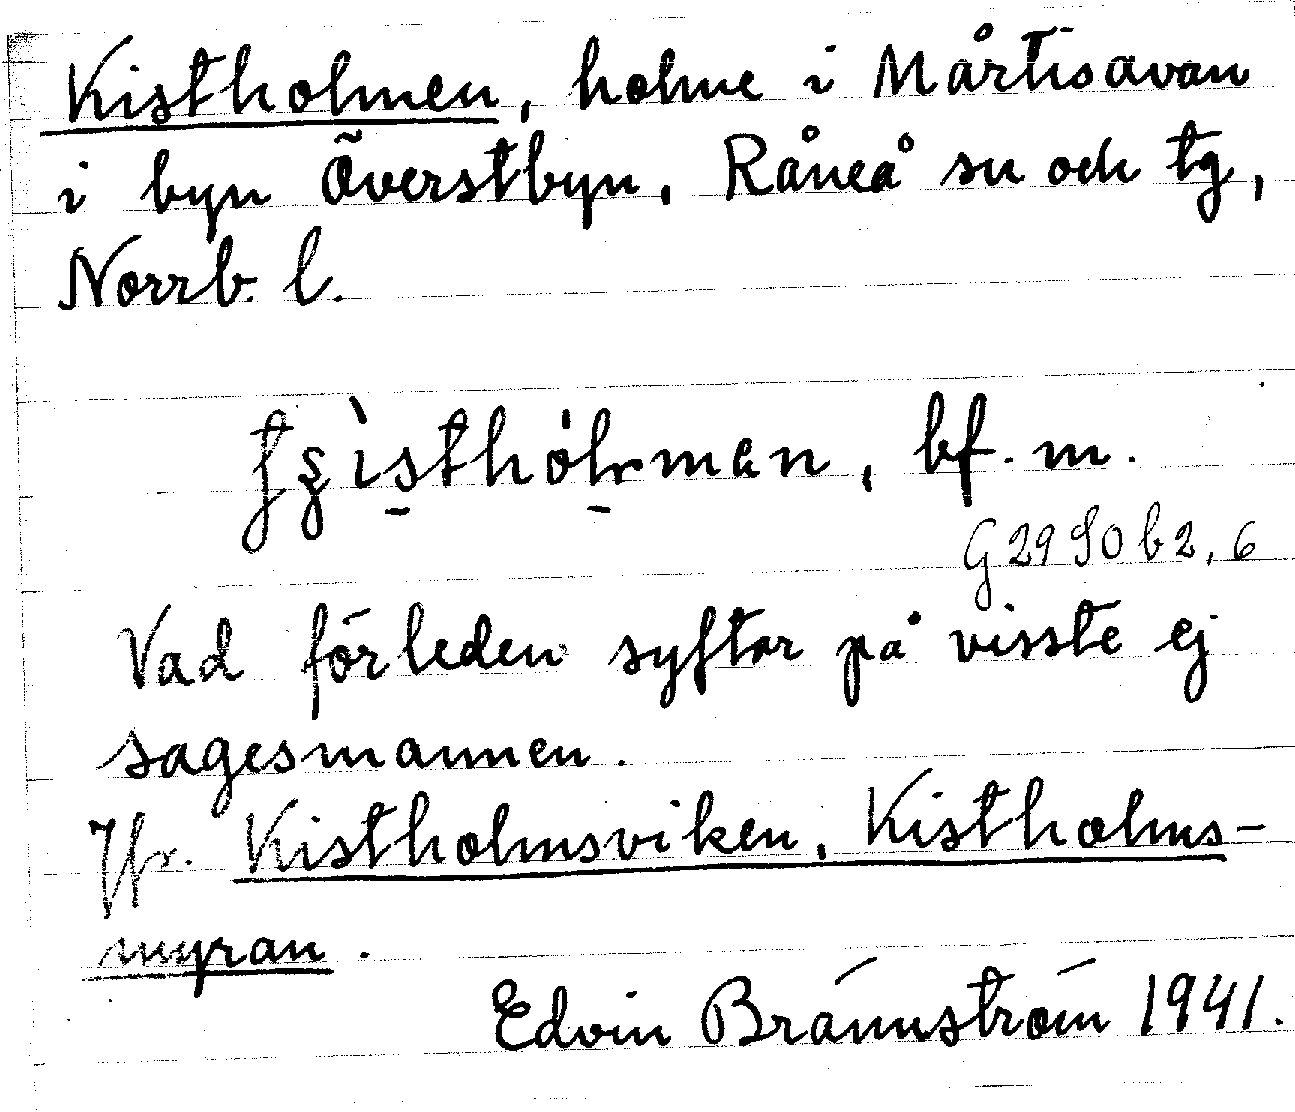 Kistholmen, holme i Mårtisavan
i byn Överstbyn, Råneå sn och tg,
Norrb. l.
bf. m.
G 29 90 b 2, 6
Vad förleden syftar på visste ej
sagesmannen.
Jfr. Kistholmsviken, Kistholms-
myran.
Edvin Brännström 1941.